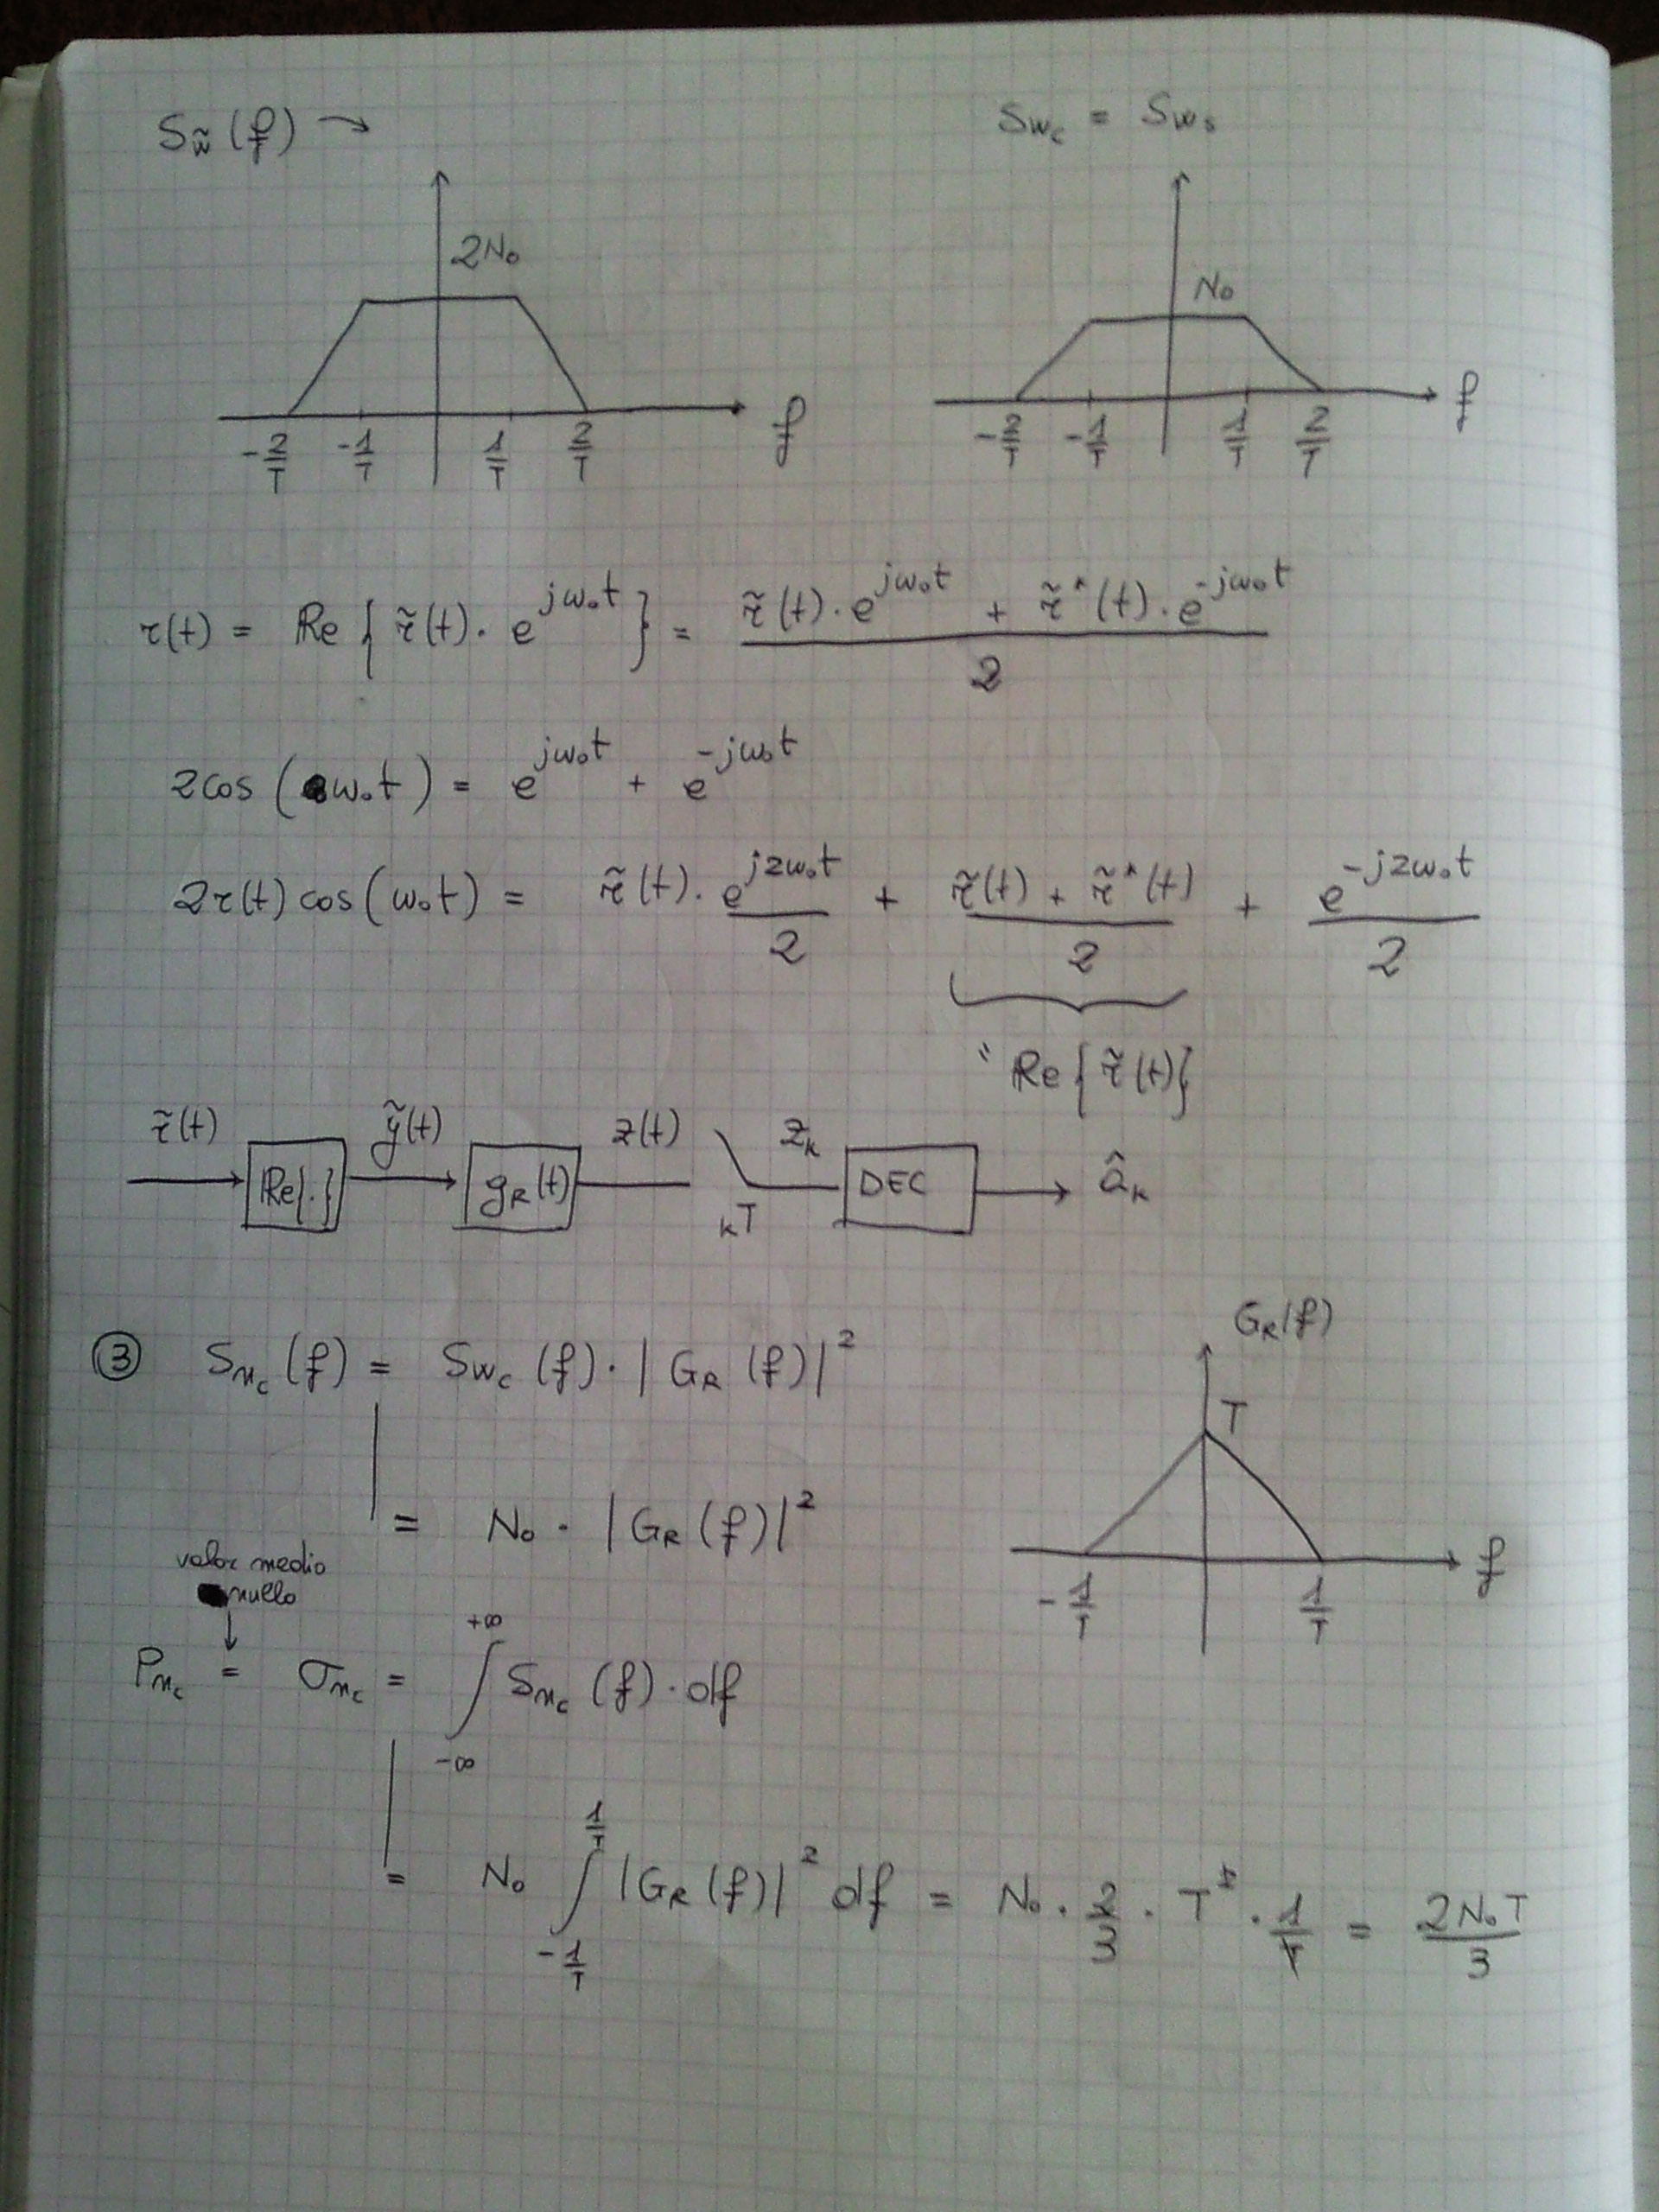 S_w̃(f) →
S_wc = S_ws
2N₀
N₀
-2/T -1/T 1/T 2/T f
-2/T -1/T 1/T 2/T f
r(t) = Re{ r̃(t) · e^{jω₀t} } = ( r̃(t) · e^{jω₀t} + r̃*(t) · e^{-jω₀t} ) / 2
2cos(ω₀t) = e^{jω₀t} + e^{-jω₀t}
2r(t)cos(ω₀t) = r̃(t) · e^{j2ω₀t}/2 + ( r̃(t) + r̃*(t) )/2 + e^{-j2ω₀t}/2
" Re{ r̃(t) }
r̃(t) ỹ(t) z(t) z_k
Re{·} g_R(t) kT DEC â_k
③ S_nc(f) = S_wc(f) · |G_R(f)|²
G_R(f)
T
-1/T 1/T f
= N₀ · |G_R(f)|²
valor medio
nullo
↓
P_nc = σ_nc = ∫_{-∞}^{+∞} S_nc(f) · df
= N₀ ∫_{-1/T}^{1/T} |G_R(f)|² df = N₀ · 2/3 · T² · 1/T = 2N₀T/3